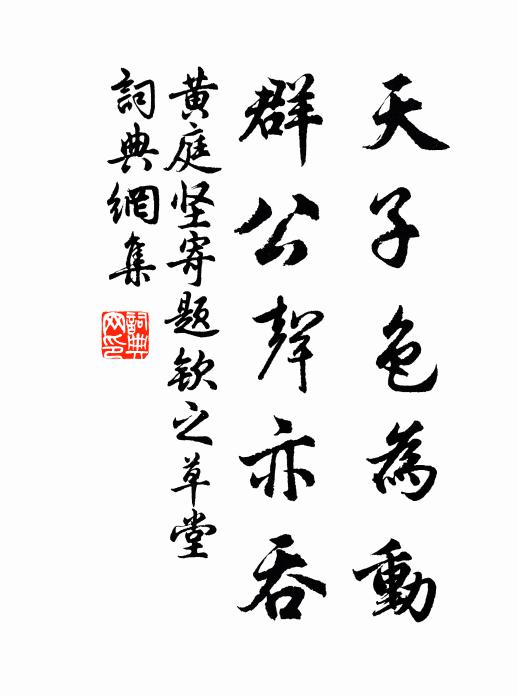 天子色為動
群公聲亦吞
黄庭坚寄題欽之草堂
詞典網集
詞典網印